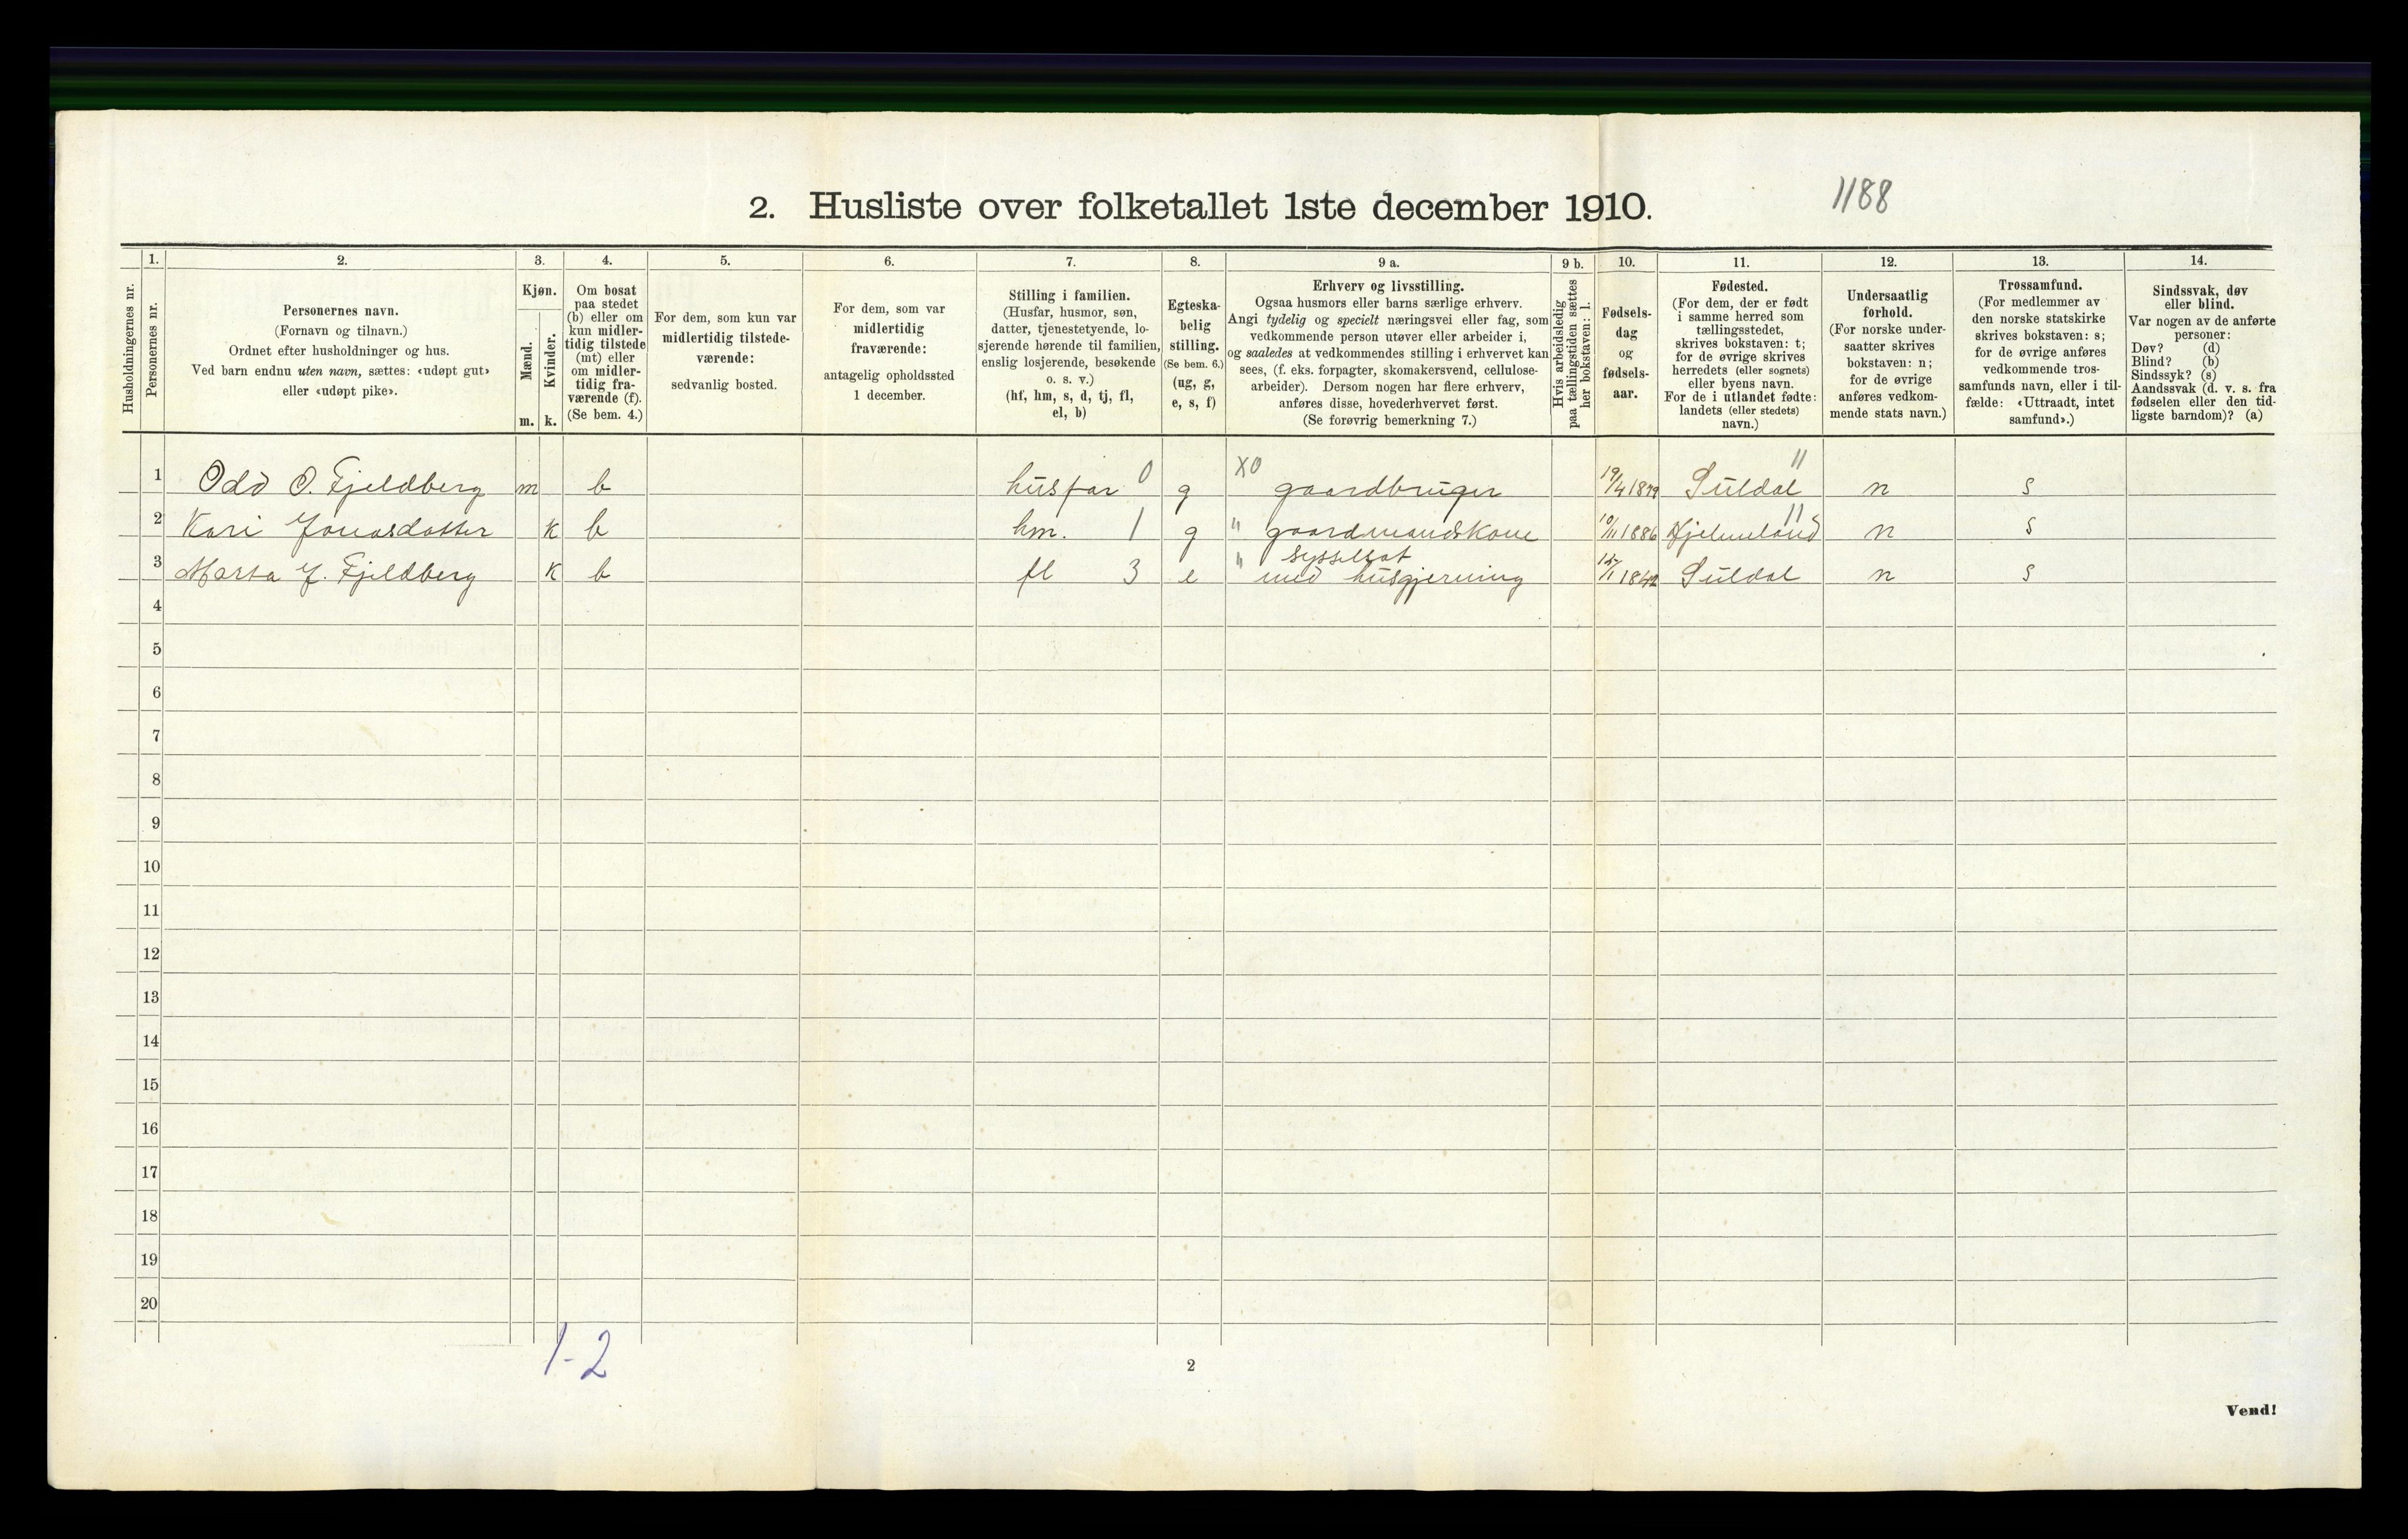 2. Husliste over folketallet 1ste december 1910.
1188
Husholdningernes nr.
1.
Personernes nr.
2.
Personernes navn.
(Fornavn og tilnavn.)
Ordnet efter husholdninger og hus.
Ved barn endnu uten navn, sættes: «udøpt gut»
eller «udøpt pike».
3.
Kjøn.
Mænd.
Kvinder.
m. k.
4.
Om bosat
paa stedet
(b) eller om
kun midler-
tidig tilstede
(mt) eller
om midler-
tidig fra-
værende (f).
(Se bem. 4.)
5.
For dem, som kun var
midlertidig tilstede-
værende:
sedvanlig bosted.
6.
For dem, som var
midlertidig
fraværende:
antagelig opholdssted
1 december.
7.
Stilling i familien.
(Husfar, husmor, søn,
datter, tjenestetyende, lo-
sjerende hørende til familien,
enslig losjerende, besøkende
o. s. v.)
(hf, hm, s, d, tj, fl,
el, b)
8.
Egteska-
belig
stilling.
(Se bem. 6.)
(ug, g,
e, s, f)
9 a.
Erhverv og livsstilling.
Ogsaa husmors eller barns særlige erhverv.
Angi tydelig og specielt næringsvei eller fag, som
vedkommende person utøver eller arbeider i,
og saaledes at vedkommendes stilling i erhvervet kan
sees, (f. eks. forpagter, skomakersvend, cellulose-
arbeider). Dersom nogen har flere erhverv,
anføres disse, hovederhvervet først.
(Se forøvrig bemerkning 7.)
9 b.
Hvis arbeidsledig
paa tællingstiden sættes
her bokstaven: l.
10.
Fødsels-
dag
og
fødsels-
aar.
11.
Fødested.
(For dem, der er født
i samme herred som
tællingsstedet,
skrives bokstaven: t;
for de øvrige skrives
herredets (eller sognets)
eller byens navn.
For de i utlandet fødte:
landets (eller stedets)
navn.)
12.
Undersaatlig
forhold.
(For norske under-
saatter skrives
bokstaven: n;
for de øvrige
anføres vedkom-
mende stats navn.)
13.
Trossamfund.
(For medlemmer av
den norske statskirke
skrives bokstaven: s;
for de øvrige anføres
vedkommende tros-
samfunds navn, eller i til-
fælde: «Uttraadt, intet
samfund».)
14.
Sindssvak, døv
eller blind.
Var nogen av de anførte
personer:
Døv? (d)
Blind? (b)
Sindssyk? (s)
Aandssvak (d. v. s. fra
fødselen eller den tid-
ligste barndom)? (a)
1 Odd O. Fjeldberg m b husfar 0 g X0 gaardbruger 19/4 1879 Suldal " n s
2 Kari Jonasdatter k b hm. 1 g " gaardmandskone 10/11 1886 Hjelmeland " n s
3 Marta J. Fjeldberg k b fl 3 e " sysselsat
med husgjerning 15/1 1842 Suldal n s
4
5
6
7
8
9
10
11
12
13
14
15
16
17
18
19
20
1-2
2
Vend!